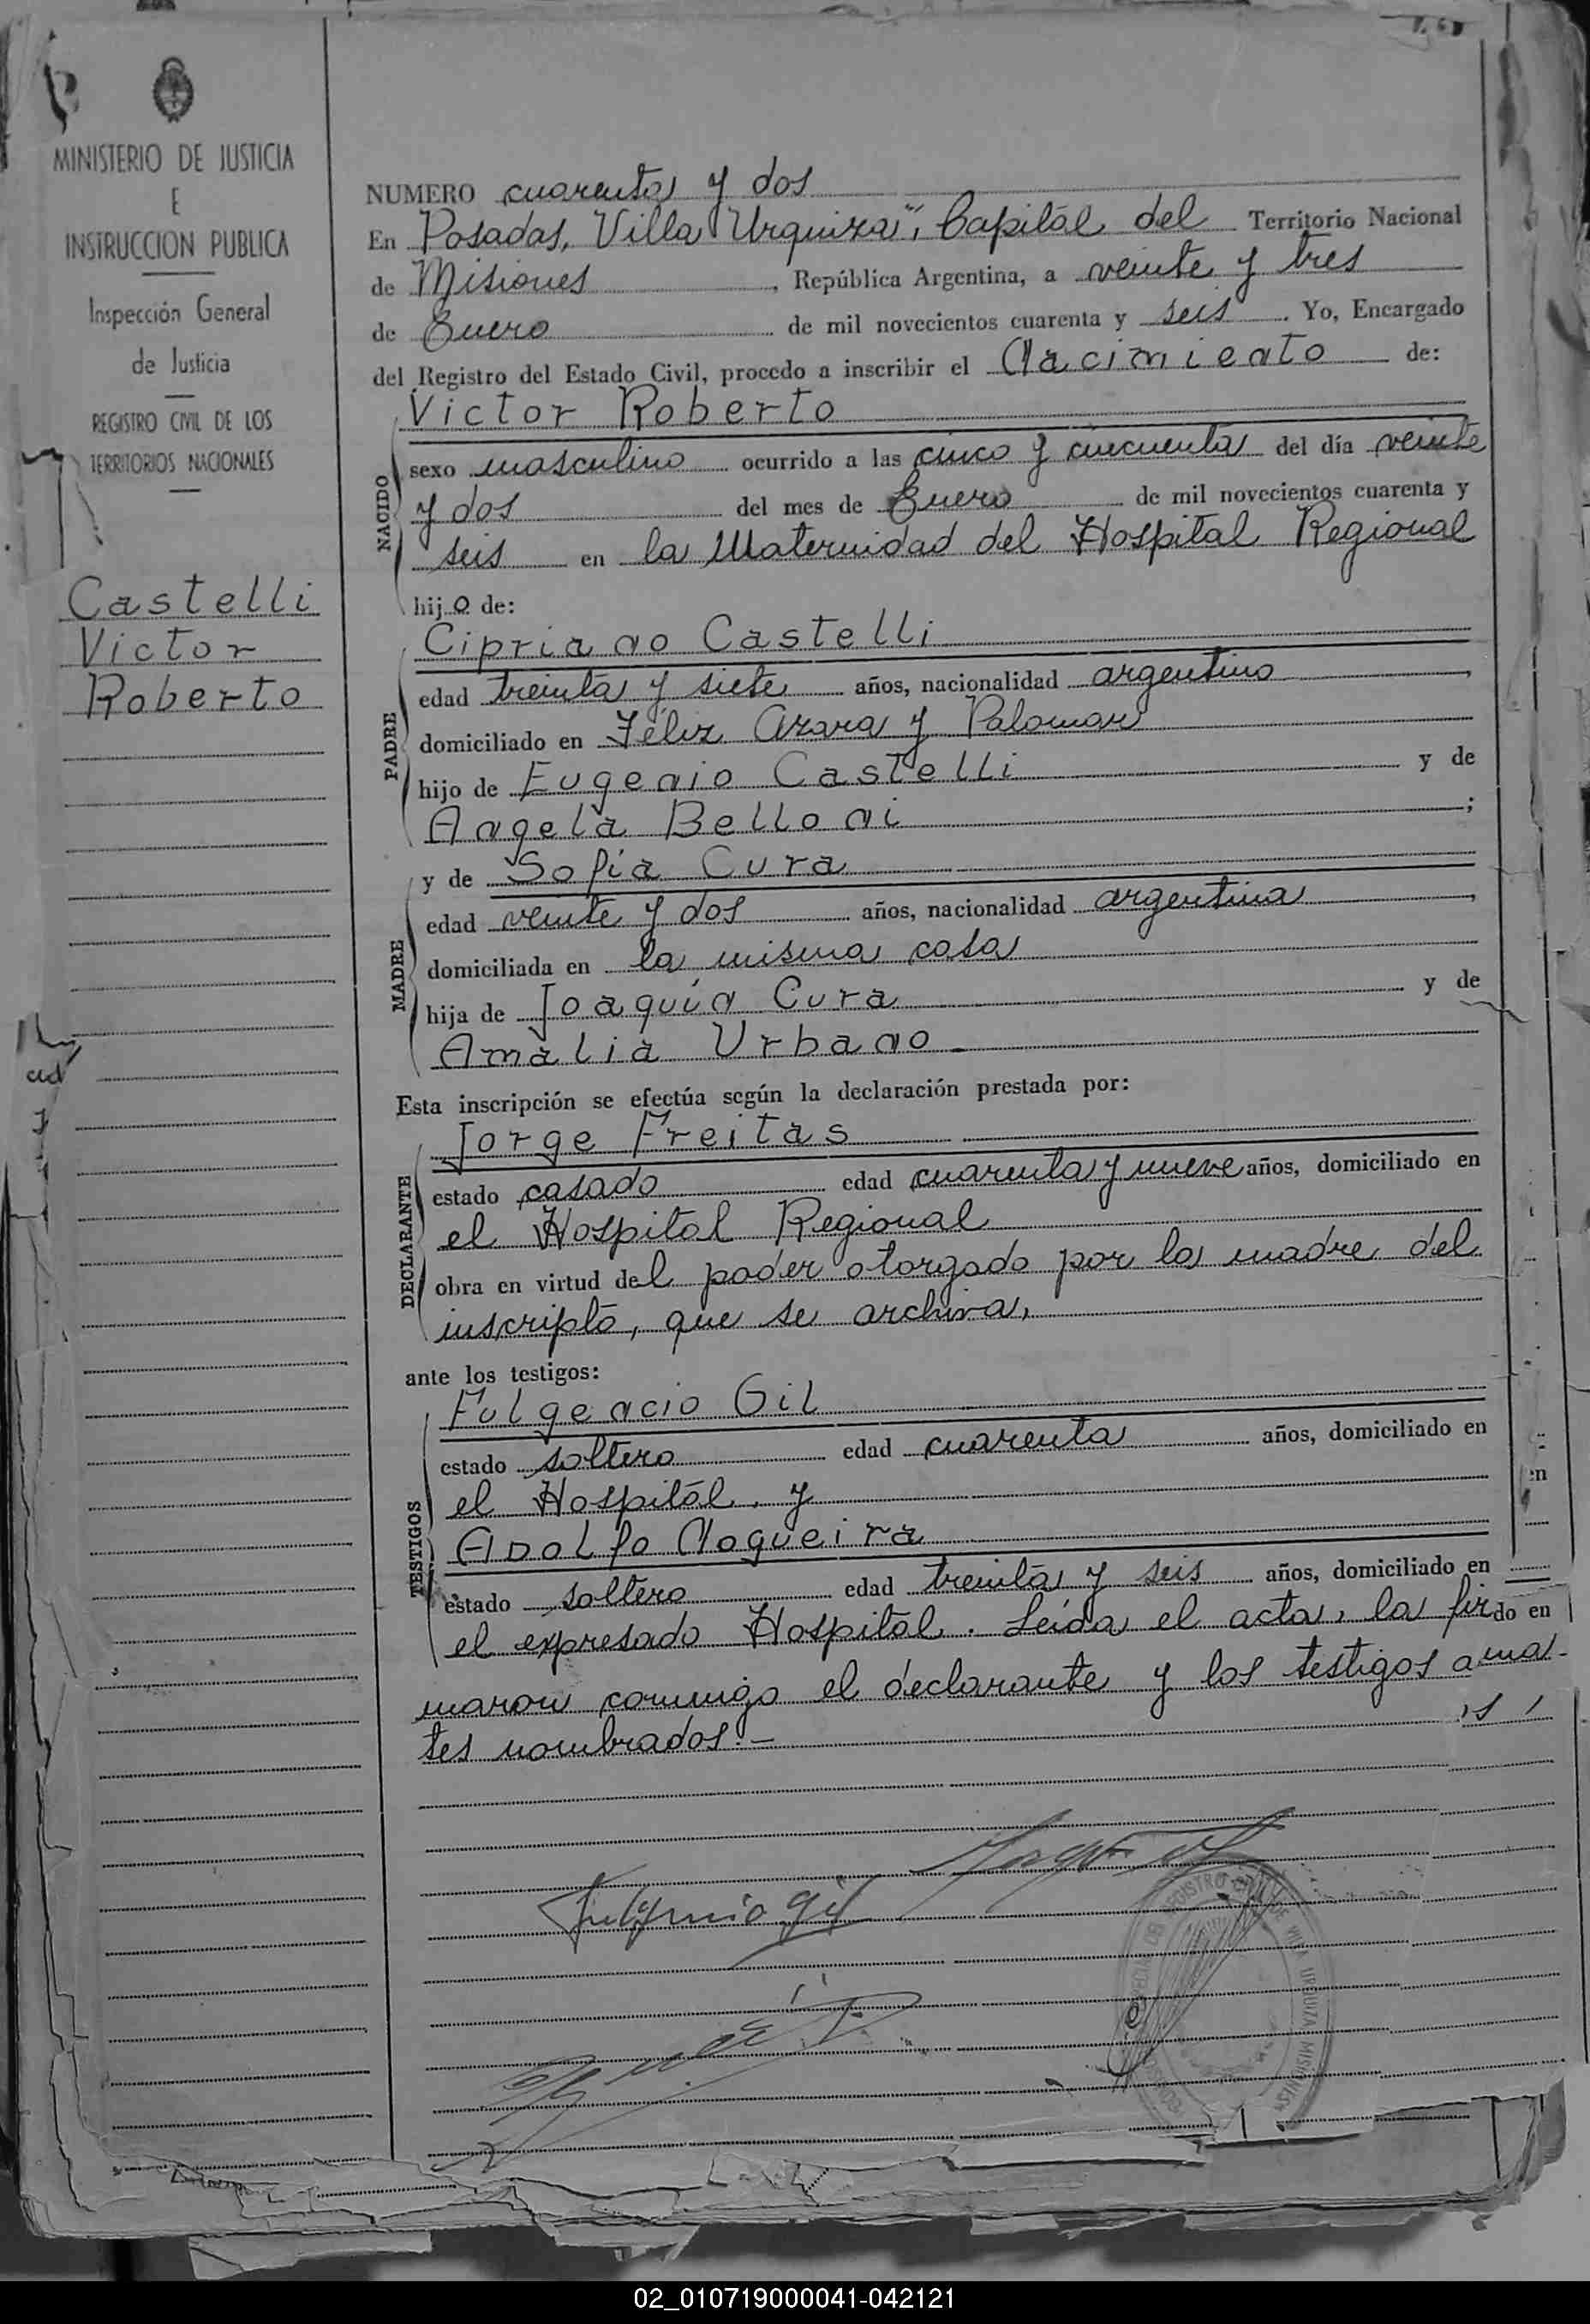 MINISTERIO DE JUSTICIA
E
INSTRUCCION PUBLICA
Inspección General
de Justicia
REGISTRO CIVIL DE LOS
TERRITORIOS NACIONALES
Castelli
Victor
Roberto
NUMERO cuarenta y dos
En Posadas, Villa "Urquiza", Capital del Territorio Nacional
de Misiones, República Argentina, a veinte y tres
de Enero de mil novecientos cuarenta y seis. Yo, Encargado
del Registro del Estado Civil, procedo a inscribir el Nacimiento de:
NACIDO
Victor Roberto
sexo masculino ocurrido a las cinco y cincuenta del día veinte
y dos del mes de Enero de mil novecientos cuarenta y
seis en la Maternidad del Hospital Regional
hijo de:
PADRE
Cipriano Castelli
edad treinta y siete años, nacionalidad argentino,
domiciliado en Félix Azara y Palomar
hijo de Eugenio Castelli y de
Angela Belloni;
MADRE
y de Sofia Cura
edad veinte y dos años, nacionalidad argentina,
domiciliada en la misma casa
hija de Joaquín Cura y de
Amalia Urbano.
Esta inscripción se efectúa según la declaración prestada por:
DECLARANTE
Jorge Freitas
estado casado edad cuarenta y nueve años, domiciliado en
el Hospital Regional
obra en virtud del poder otorgado por la madre del
inscripto, que se archiva,
ante los testigos:
TESTIGOS
Fulgencio Gil
estado soltero edad cuarenta años, domiciliado en
el Hospital, y
Adolfo Nogueira
estado soltero edad treinta y seis años, domiciliado en
el expresado Hospital. Leída el acta, la fir
do en
maron conmigo el declarante y los testigos an
tes nombrados.-
Fulgencio Gil
REGISTRO CIVIL DE VILLA URQUIZA MISIONES
02_010719000041-042121